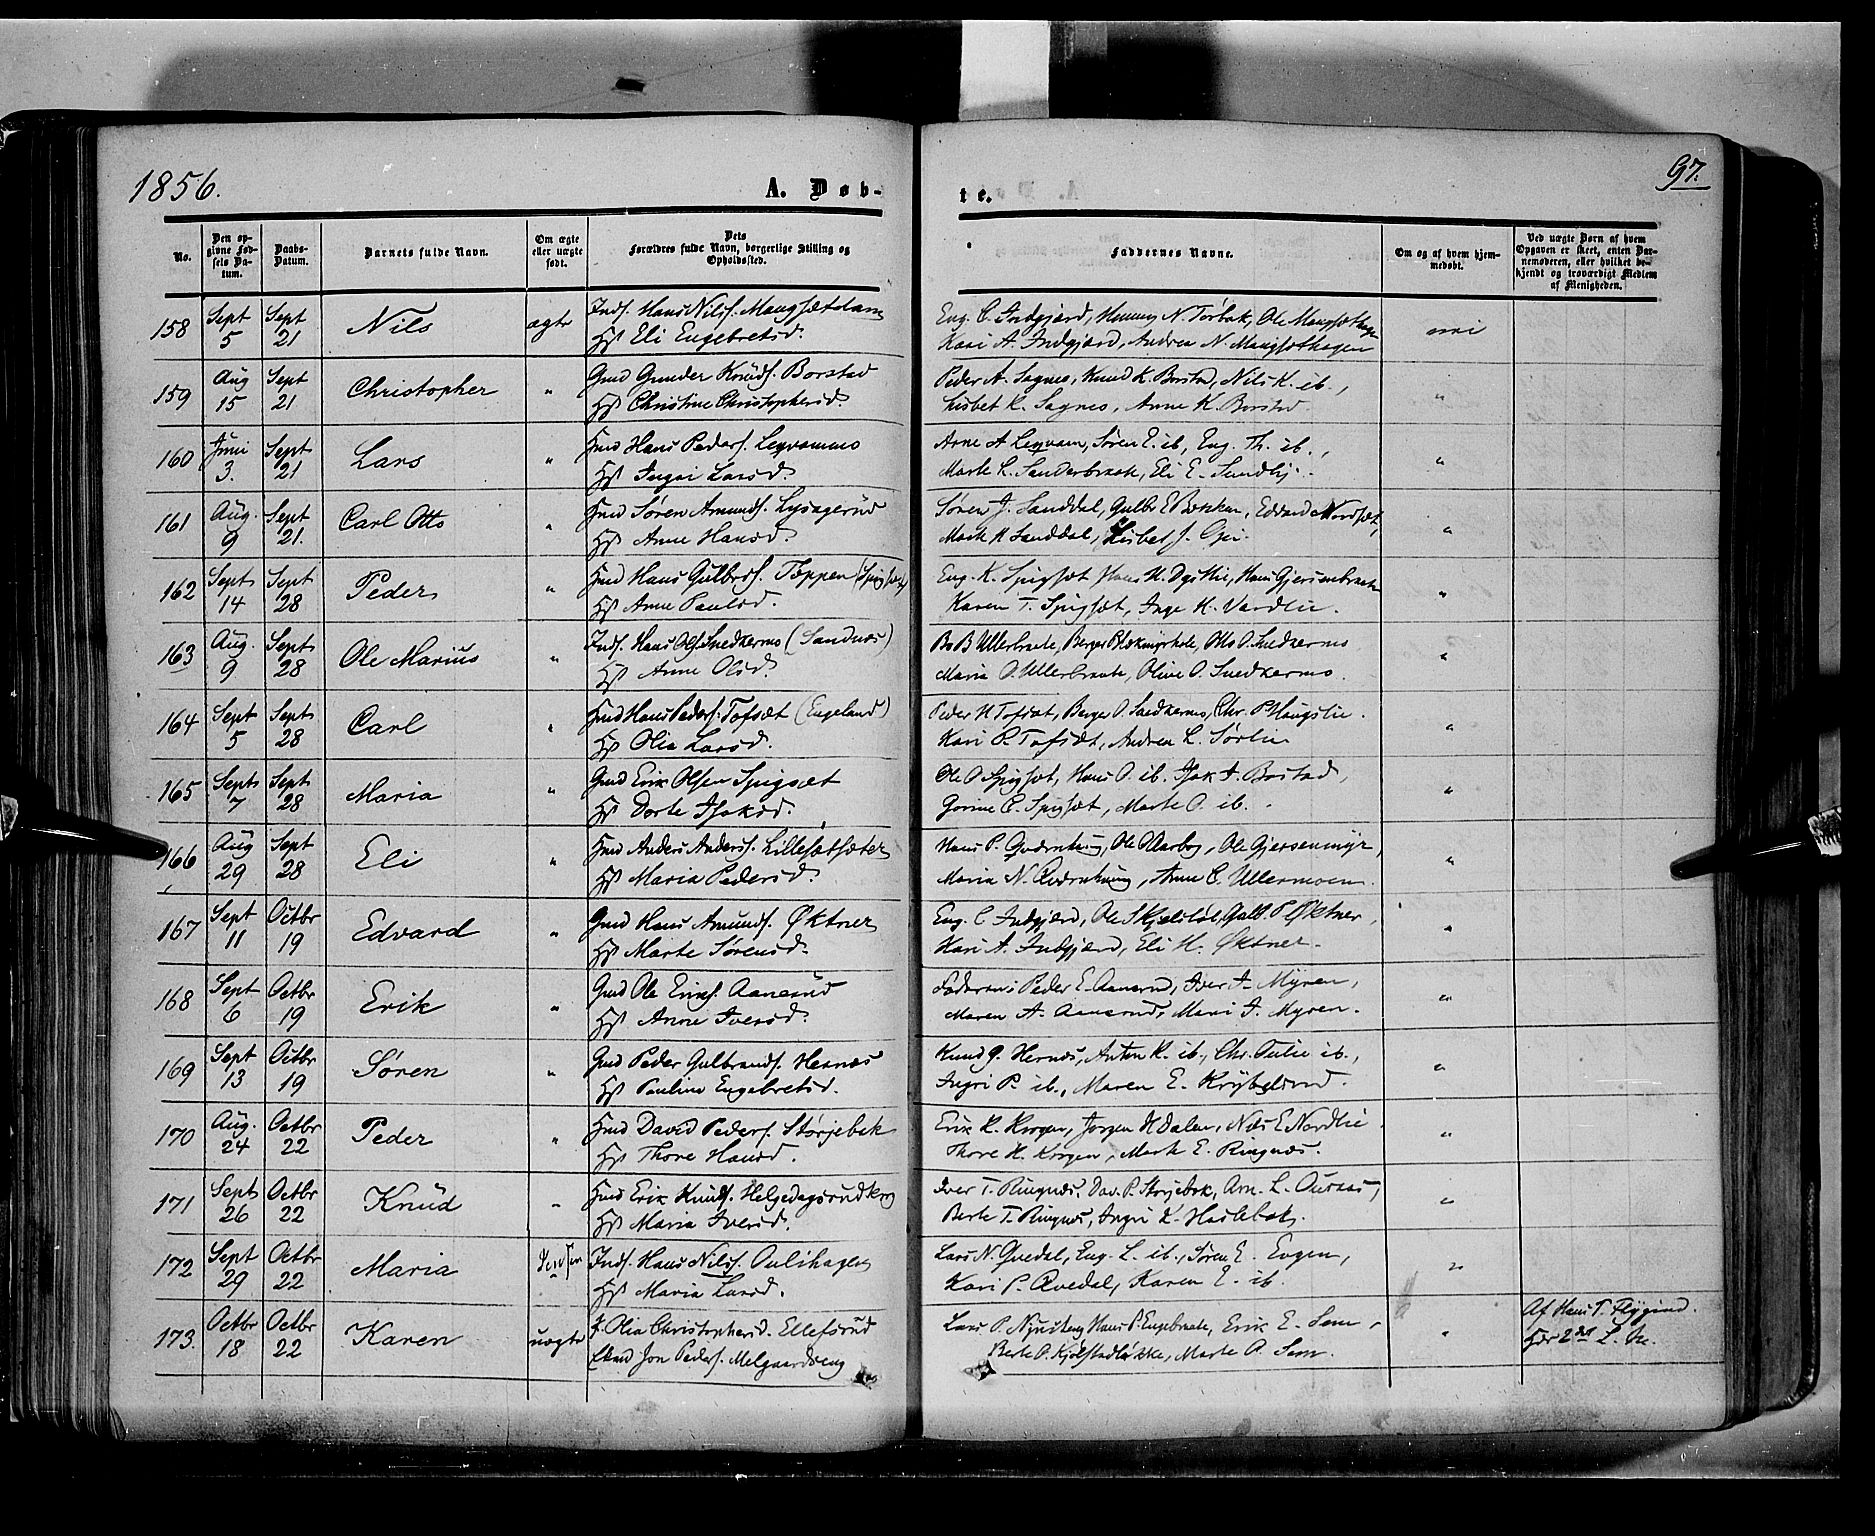 1856.
A. Døb-
te.
97.
No.
Den op-
givne Fød-
sels Da-
tum.
Daabs-
Datum.
Barnets fulde Navn.
Om ægte
eller uægte
født.
Dets
Forældres fulde Navn, borgerlige Stilling og
Opholdssted.
Faddernes Navne.
Om og af hvem hjem-
medøbt.
Ved uægte Børn af hvem
Opgaven er skeet, enten Bar-
nemoderen, eller hvilket be-
kjendt og troværdigt Medlem
af Menigheden.
158 Sept 5 Sept 21 Nils ægte Inds. Hans Nils.
Hst Eli Engebretsd.
Eng. C. Indgjærd, Henning N. Ole
Kari A. Indgjærd, Andrea N.
159 Aug 15 Sept 21 Christopher " Gmd Gunder Knuds. Borstad
Hst Christine Christophersd.
Peder A. Sagnes, Knud K. Borstad, Nils K. ib.,
Lisbet K. Sagnes, Anne K. Borstad. "
160 Juni 3. Sept 21 Lars " Hmd Hans Peders.
Hst Ingri Larsd.
Arne A. Søren E. ib, Eng. Th. ib.,
Marte L. Eli E. "
161 Aug. 9 Sept 21. Carl Otto " Hmd Søren Amunds.
Hst Anne Hansd.
Søren J. Sanddal, Gulbr E Edvard
Marte H Sanddal, Lisbet J. "
162 Sept 14 Sept 28 Peder " Hmd Hans Gulbrds. Tæppen
Hst Anne Paulsd.
Eng. K. Spigsæt Hans H. Hans
Karen T. Spigsæt, Inge K. "
163 Aug. 9 Sept 28 Ole Marius " Inds. Hans Ols. Snedkermo (Sandnæs)
Hst Anne Olsd.
Bo B Ullerbraate, Berger Otto O. Snedkermo
Maria O. Ullerbraate, Olive O. Snedkermo. "
164 Sept 5 Sept 28 Carl " Hmd Hans Peders. Tofsæt (Engeland)
Hst Olia Larsd.
Peder H Tofsæt, Berger O. Snedkermo, Chr. P Haugslie.
Kari P. Tofsæt, Andrea L. Sørlie "
165 Sept 7 Sept 28 Maria " Gmd Erik Olsen Spigsæt
Hst Dorte Isaksd.
Ole O. Spigsæt, Hans O. ib. Isak I. Borstad,
C. Spigsæt, Marte O. ib. "
166 Aug 29 Sept 28 Eli " Hmd Anders Anders. Lillesætsæter
Hst Maria Pedersd.
Hans P. Ole Ole
Maria N. Anne C. Ullermoen. "
167 Sept 11 Octbr 19 Edvard " Gmd Hans Amunds. Øktner
Hst Marte Sørensd.
Eng. C. Indgjærd, Ole S Gulb. P Øktner,
Kari A. Indgjærd, Eli H. Øktner. "
168 Sept 6 Octbr 19 Erik " Gmd Ole Eriks. Aanerud
Hst Anne Iversd.
Faderen: Peder E. Aanerud, Iver I. Myren,
Maren A. Aanerud, Mari I. Myren. "
169 Sept 13 Octbr 19 Søren " Gmd Peder Gulbrands. Hernæs
Hst Pauline Engebretsd.
Knud G. Hernæs, Anton K. ib., Chr. Julie ib.,
Ingri P. ib., Maren E. "
170 Aug. 24 Octbr 22 Peder " Hmd David Peders. Størjebak
Hst Thore Hansd.
Erik K. Krogen, Jørgen H Dalen, Nils E. Nordlie
Thore K. Krogen, Marte E. Ringnæs. "
171 Sept 26 Octbr 22 Knud " Hmd Erik Knuds.
Hst Maria Iversd.
Iver T. Ringnæs, Dav. P. Storjebak, Arn. L.
Berte T. Ringnæs, Ingri K. "
172 Sept 29 Octbr 22 Maria Inds. Hans Nils. Oulihagen
Hst Maria Larsd.
Lars N. Qvedal, Eng. L. ib., Søren E. Evgen,
Kari P. Qvedal, Karen E. ib. "
173. Octbr 18 Octbr 22 Karen uægte P. Olia Christophersd. Ellefsrud
Jon Peders. Melgaardseng
Lars P. Hans P. Engebraate, Erik E. Sem,
Berte P. Marte O. Sem. "
Af Hans T. Flygind.
Hdr 2det L.